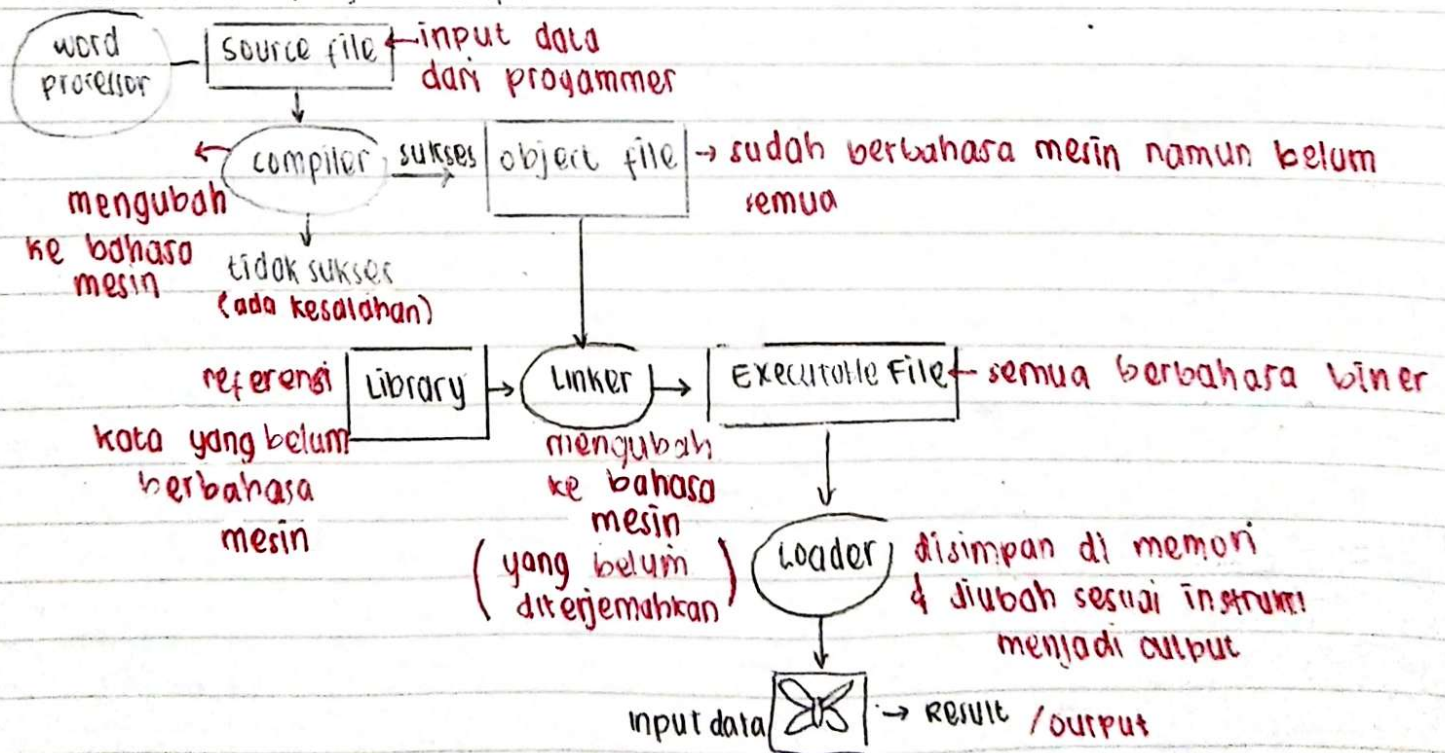 word
processor
source file
input data
dari progammer
compiler
sukses
object file
sudah berbahasa mesin namun belum
semua
mengubah
ke bahasa
mesin
tidak sukses
(ada kesalahan)
referensi
kata yang belum
berbahasa
mesin
Library
Linker
mengubah
ke bahasa
mesin
(yang belum
diterjemahkan)
Executable File
semua berbahasa biner
Loader
disimpan di memori
& diubah sesuai instruksi
menjadi output
input data
Result / output